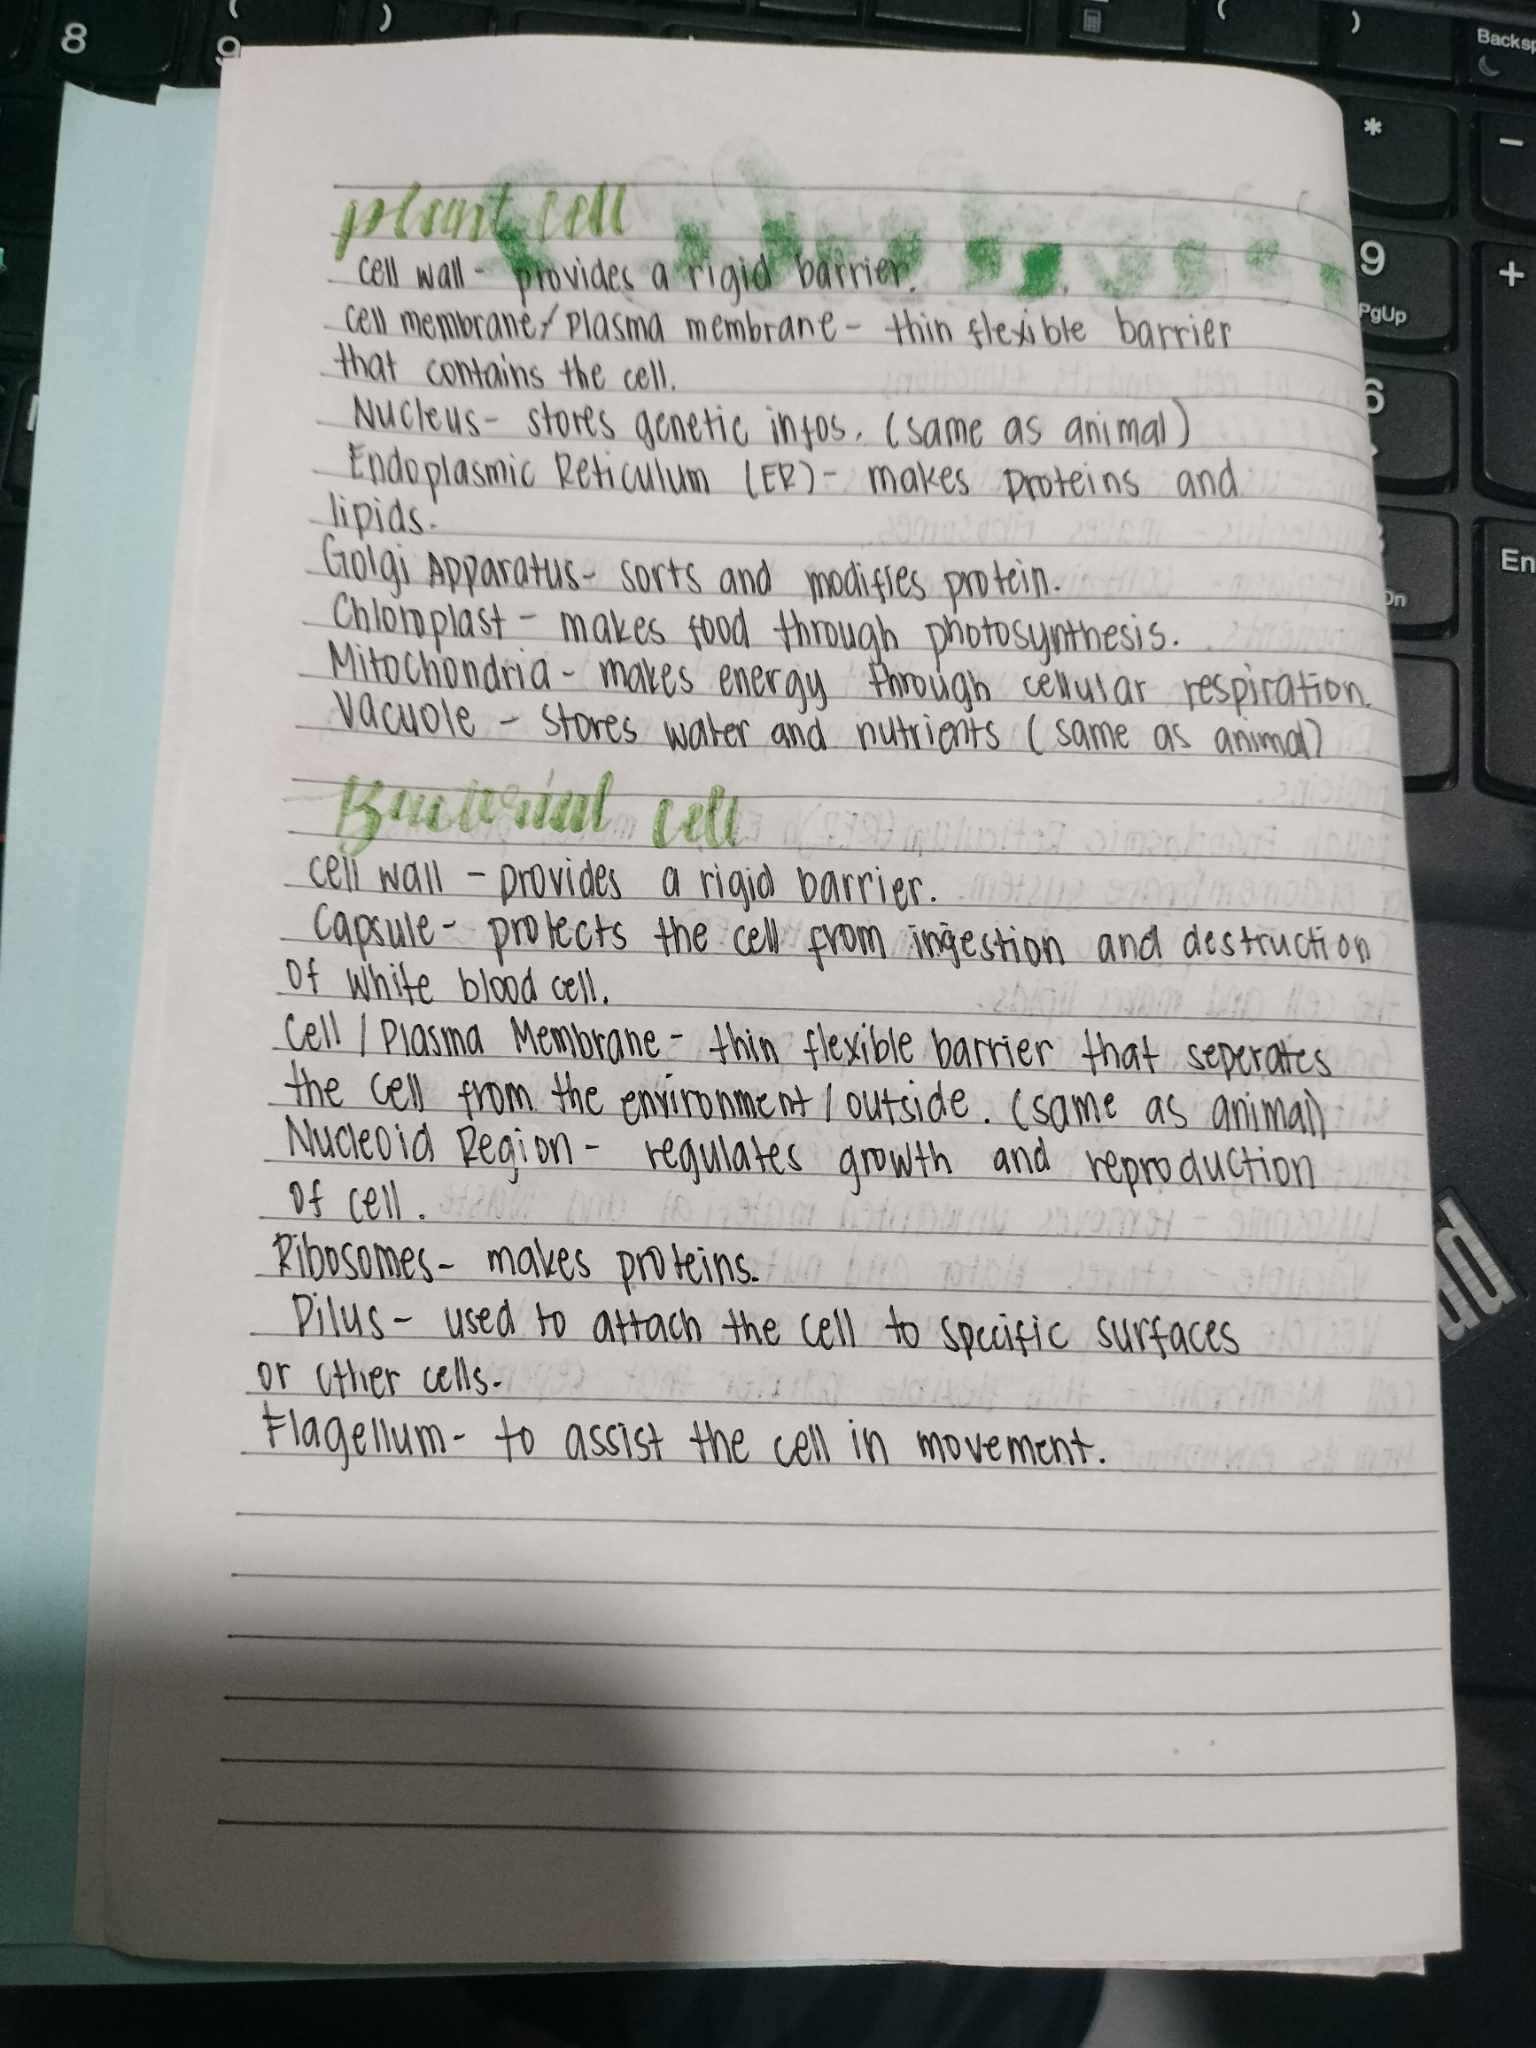 8
9
(
)
(
)
Backsp
*
-
9
PgUp
+
6
En
On
plant cell
cell wall - provides a rigid barrier.
cell membrane/plasma membrane - thin flexible barrier
that contains the cell.
Nucleus - stores genetic infos. (same as animal)
Endoplasmic Reticulum (ER) - makes proteins and
lipids.
Golgi Apparatus - sorts and modifies protein.
Chloroplast - makes food through photosynthesis.
Mitochondria - makes energy through cellular respiration.
Vacuole - stores water and nutrients (same as animal)
Bacterial cell
cell wall - provides a rigid barrier.
Capsule - protects the cell from ingestion and destruction
of white blood cell.
Cell / Plasma Membrane - thin flexible barrier that seperates
the cell from the environment / outside. (same as animal)
Nucleoid Region - regulates growth and reproduction
of cell.
Ribosomes - makes proteins.
Pilus - used to attach the cell to specific surfaces
or other cells.
Flagellum - to assist the cell in movement.